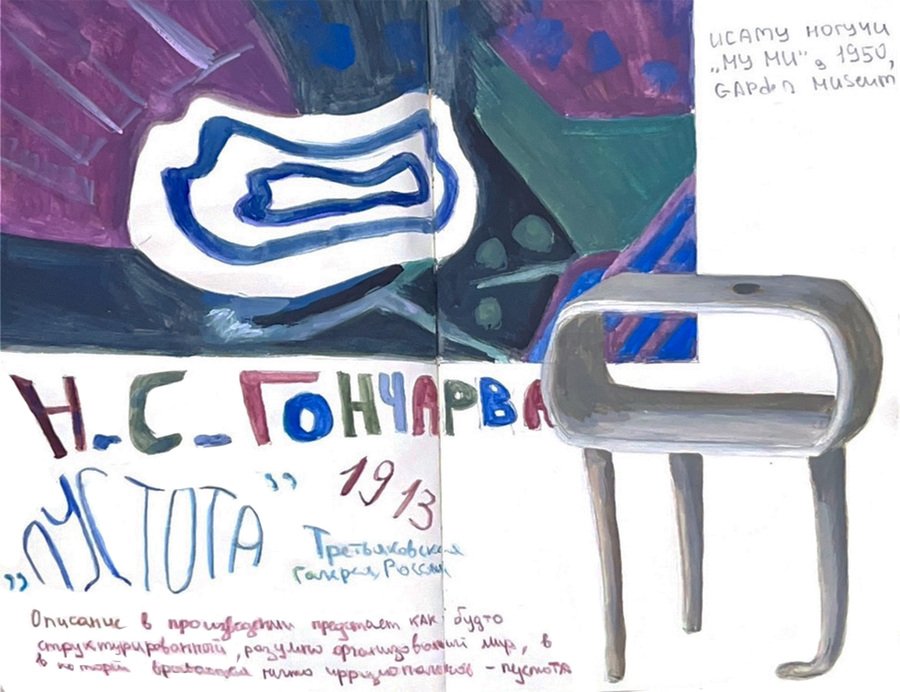 исаму ногучи
„му ми" в 1950,
GARden museum
Н_С_ГОНЧАРВА
„ПУСТОТА” 1913
Третьяковская
галерея, Россия
Описание в произведении предстает как будто
структурированной, разумно организований мир, в
в который врывается нечто - пустота